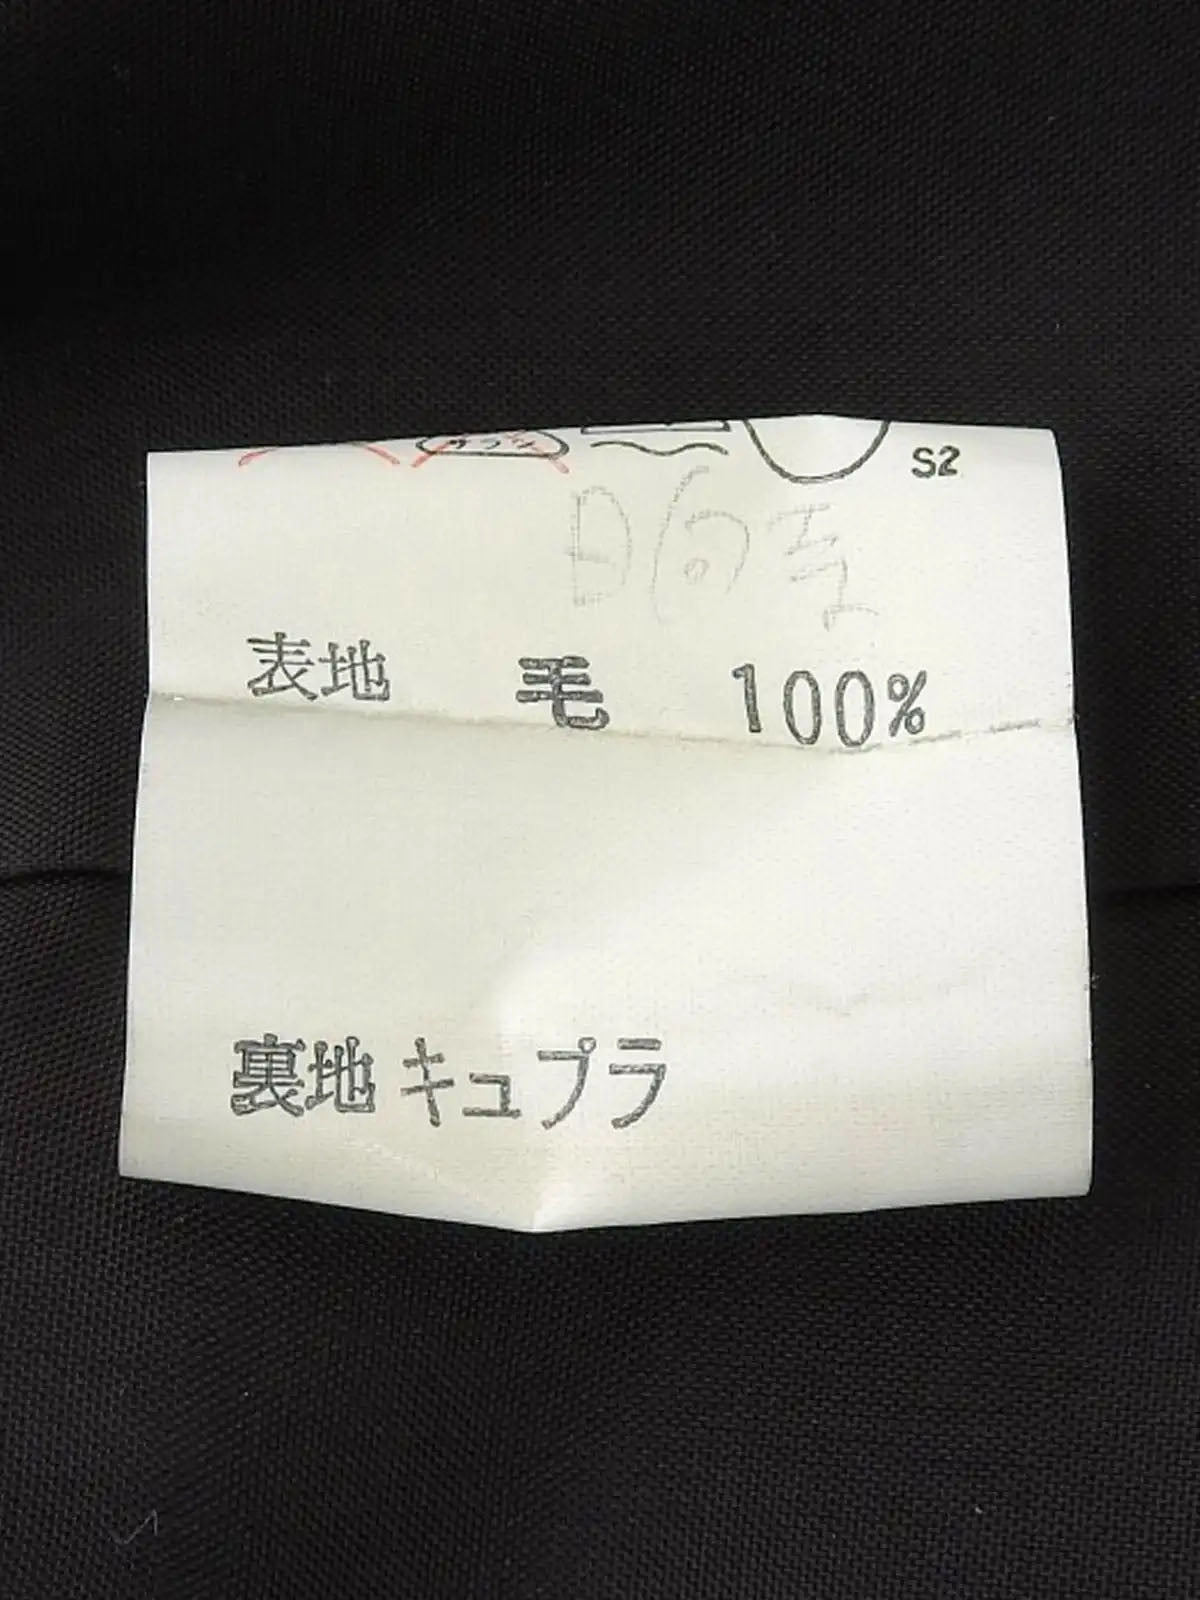 S2
表地 毛 100%
裏地 キュプラ